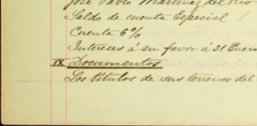 José Pablo Martinez del Rio
Saldo de cuenta Especial
Cuenta 6%
Intereses á su favor á 31 Enero
IX Documentos
Los títulos de sus terrenos del